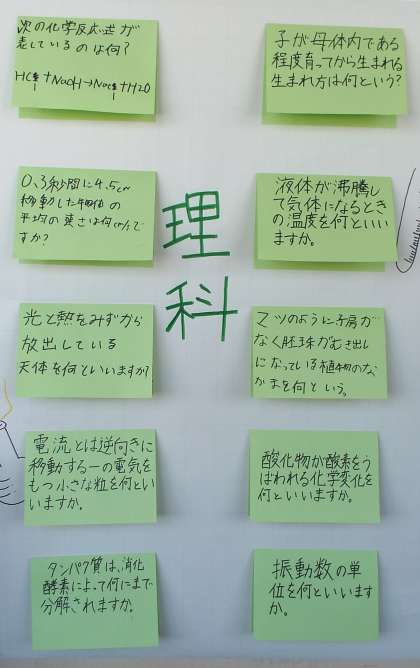 次の化学反応式が
表しているのは何?
HCl+NaOH→NaCl+H2O
子が母体内である
程度育ってから生まれる
生まれ方は何という?
0.3秒間に4.5cm
移動した物体の
平均の速さは何cm/sで
すか?
液体が沸騰し
て気体になるとき
の温度を何といい
ますか。
理
科
光と熱をみずから
放出している
天体を何といいますか?
マツのように子房が
なく胚珠がむき出し
になっている植物のな
かまを何という。
電流とは逆向きに
移動する一の電気を
もつ小さな粒を何とい
いますか。
酸化物が酸素をう
ばわれる化学変化を
何といいますか。
タンパク質は、消化
酵素によって何にまで
分解されますか。
振動数の単
位を何といいます
か。